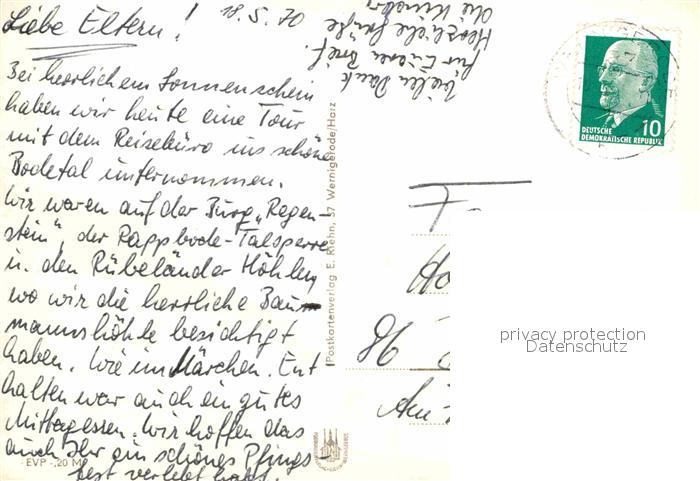 Liebe Eltern! 18.5.70
Bei herrlichem Sonnenschein
haben wir heute eine Tour
mit dem Reisebüro ins schöne
Bodetal unternommen.
Wir waren auf der Burg „Regen-
stein", der Rappbode-Talsperre
u. den Rübeländer Höhlen,
wo wir die herrliche Bau-
mannshöhle besichtigt
haben. Wie im Märchen. Ent
halten war auch ein gutes
Mittagessen. Wir hoffen das
auch Ihr ein schönes Pfings-
fest verlebt habt.
Vielen Dank
für Euren Brief.
Herzliche Grüße
die Kinder
EVP -,20 M
Postkartenverlag E. Riehn, 37 Wernigerode/Harz
10
DEUTSCHE
DEMOKRATISCHE REPUBLIK
F
Ho
86
Am
privacy protection
Datenschutz